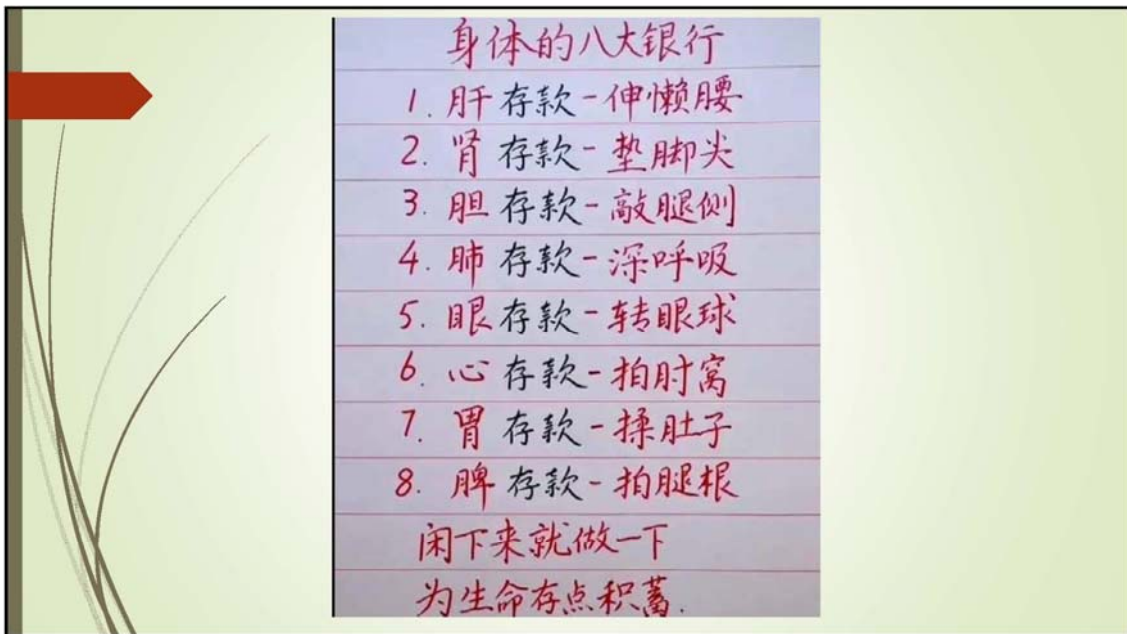 身体的八大银行
1. 肝存款-伸懒腰
2. 肾存款-垫脚尖
3. 胆存款-敲腿侧
4. 肺存款-深呼吸
5. 眼存款-转眼球
6. 心存款-拍肘窝
7. 胃存款-揉肚子
8. 脾存款-拍腿根
闲下来就做一下
为生命存点积蓄.